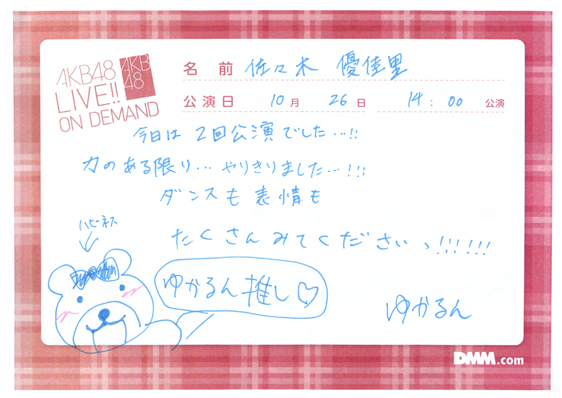 AKB48
LIVE!!
ON DEMAND
AKB
48
名 前 佐々木 優佳里
公演日 10月 26日 14:00 公演
今日は 2回公演でした…!!
力のある限り…やりきりました…!!!
ダンスも表情も
たくさんみてくださいっ!!!!!!
ハピネス
ゆかるん推し♡
ゆかるん
DMM.com